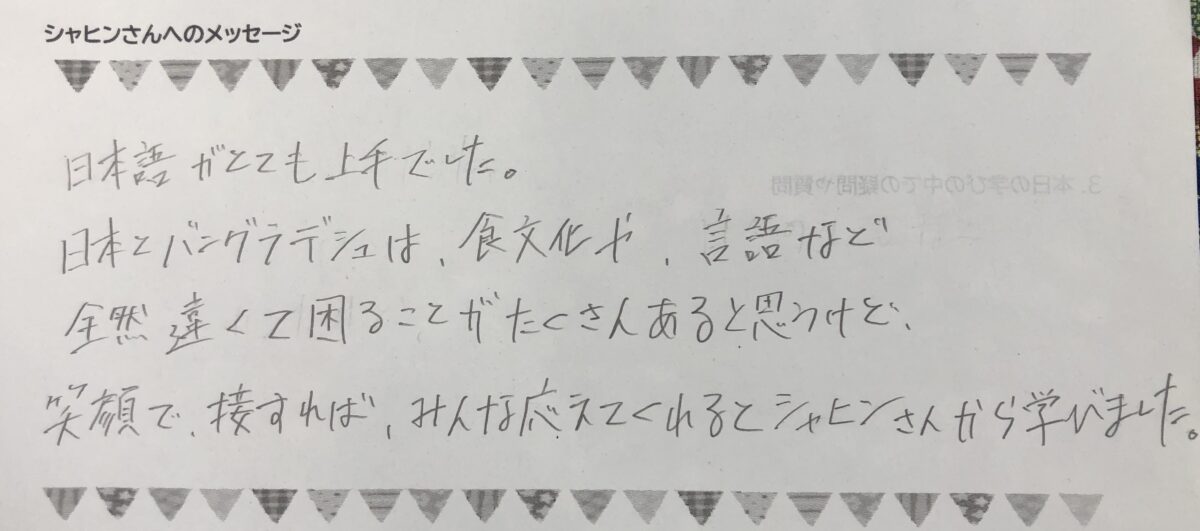 シャヒンさんへのメッセージ
日本語がとても上手でした。
日本とバングラデシュは、食文化や、言語など
全然違くて困ることがたくさんあると思うけど、
笑顔で、接すれば、みんな応えてくれるとシャヒンさんから学びました。
3. 本日の学びの中での疑問や質問